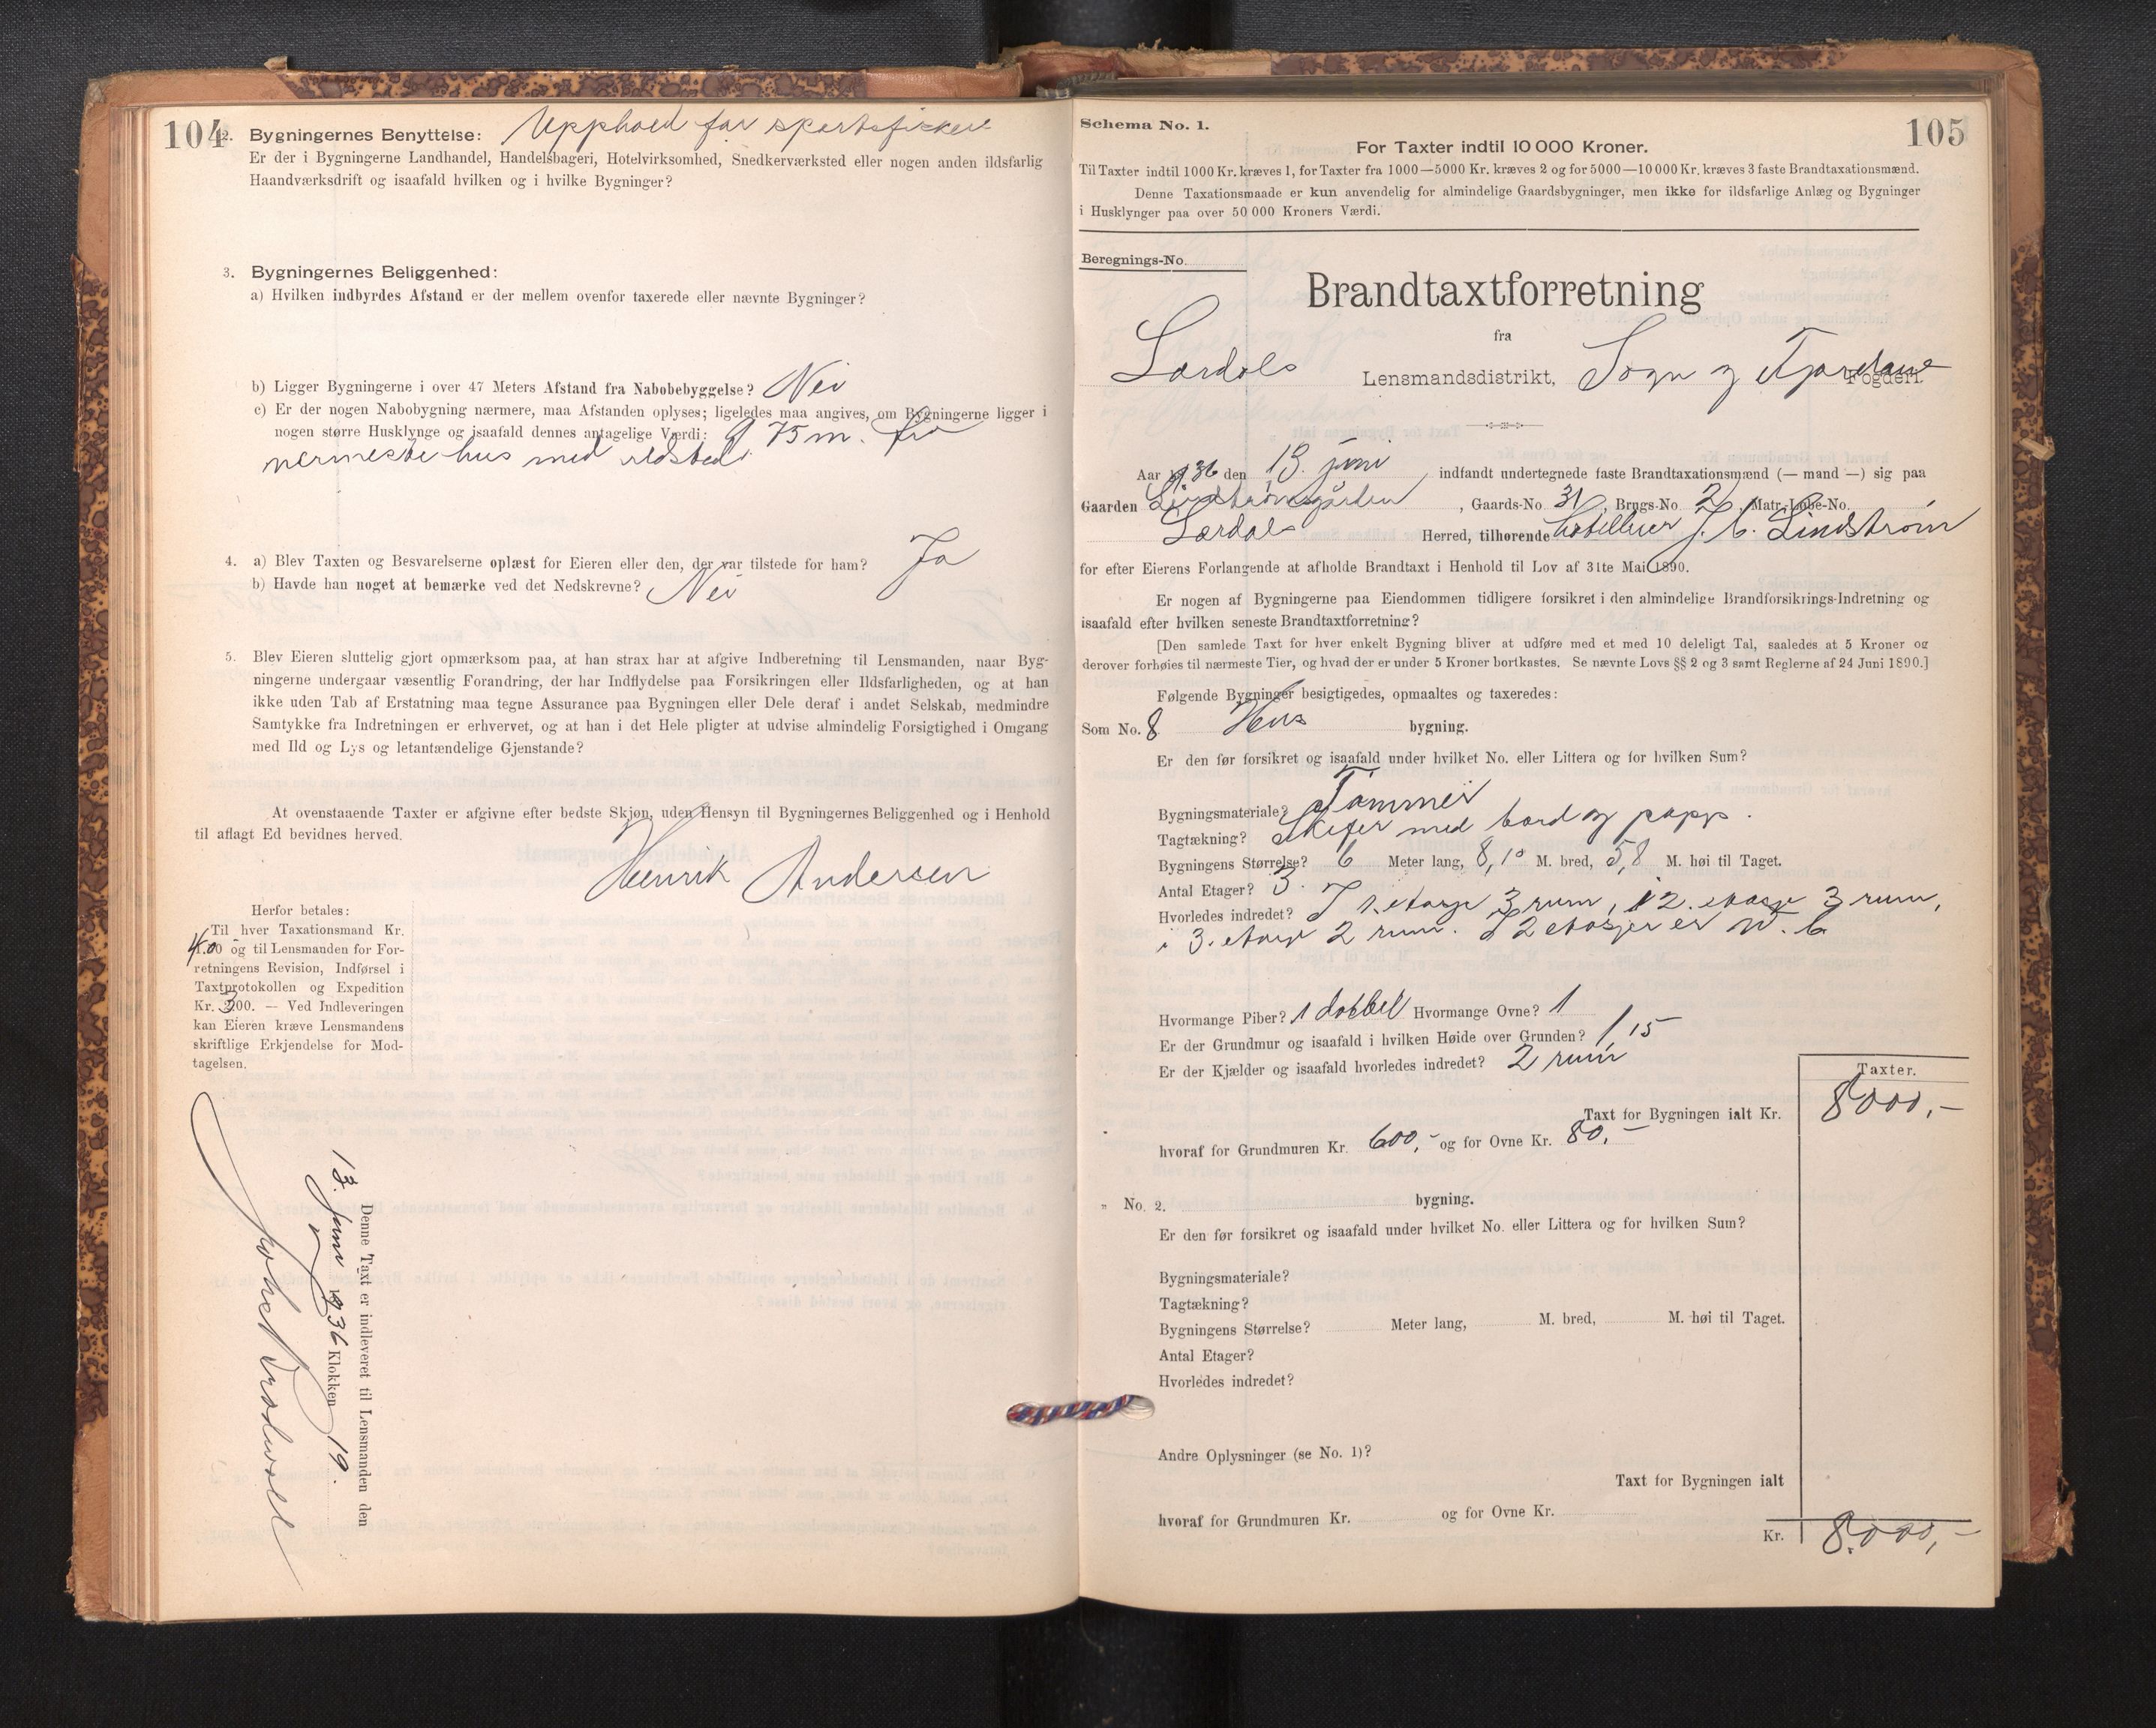 104
2. Bygningernes Benyttelse: Upphald for sportsfiskere
Er der i Bygningerne Landhandel, Handelsbageri, Hotelvirksomhed, Snedkerværksted eller nogen anden ildsfarlig
Haandværksdrift og isaafald hvilken og i hvilke Bygninger?
3. Bygningernes Beliggenhed:
a) Hvilken indbyrdes Afstand er der mellem ovenfor taxerede eller nævnte Bygninger?
b) Ligger Bygningerne i over 47 Meters Afstand fra Nabobebyggelse? Nei
c) Er der nogen Nabobygning nærmere, maa Afstanden oplyses; ligeledes maa angives, om Bygningerne ligger i
nogen større Husklynge og isaafald dennes antagelige Værdi: 9,75 m. fra
nermeste hus med ildsted.
4. a) Blev Taxten og Besvarelserne oplæst for Eieren eller den, der var tilstede for ham? Ja
b) Havde han noget at bemærke ved det Nedskrevne? Nei
5. Blev Eieren sluttelig gjort opmærksom paa, at han strax har at afgive Indberetning til Lensmanden, naar Byg-
ningerne undergaar væsentlig Forandring, der har Indflydelse paa Forsikringen eller Ildsfarligheden, og at han
ikke uden Tab af Erstatning maa tegne Assurance paa Bygningen eller Dele deraf i andet Selskab, medmindre
Samtykke fra Indretningen er erhvervet, og at han i det Hele pligter at udvise almindelig Forsigtighed i Omgang
med Ild og Lys og letantændelige Gjenstande?
At ovenstaaende Taxter er afgivne efter bedste Skjøn, uden Hensyn til Bygningernes Beliggenhed og i Henhold
til aflagt Ed bevidnes herved.
Henrik Andersen
Herfor betales:
Til hver Taxationsmand Kr.
4.00 og til Lensmanden for For-
retningens Revision, Indførsel i
Taxtprotokollen og Expedition
Kr. 3.00. — Ved Indleveringen
kan Eieren kræve Lensmandens
skriftlige Erkjendelse for Mod-
tagelsen.
Denne Taxt er indleveret til Lensmanden den
13. juni 1936 Klokken 19.
105
Schema No. 1.
For Taxter indtil 10 000 Kroner.
Til Taxter indtil 1000 Kr. kræves 1, for Taxter fra 1000—5000 Kr. kræves 2 og for 5000—10 000 Kr. kræves 3 faste Brandtaxationsmænd.
Denne Taxationsmaade er kun anvendelig for almindelige Gaardsbygninger, men ikke for ildsfarlige Anlæg og Bygninger
i Husklynger paa over 50 000 Kroners Værdi.
Beregnings-No.
Brandtaxtforretning
fra
Lærdals Lensmandsdistrikt, Sogn og Fjordane Fogderi.
Aar 1936 den 13. juni indfandt undertegnede faste Brandtaxationsmænd (— mand —) sig paa
Gaarden Lindstrømsgården, Gaards-No. 31, Brugs-No. 2, Matr.-Løbe-No.
Lærdals Herred, tilhørende hotelleier J. C. Lindstrøm
for efter Eierens Forlangende at afholde Brandtaxt i Henhold til Lov af 31te Mai 1890.
Er nogen af Bygningerne paa Eiendommen tidligere forsikret i den almindelige Brandforsikrings-Indretning og
isaafald efter hvilken seneste Brandtaxtforretning?
[Den samlede Taxt for hver enkelt Bygning bliver at udføre med et med 10 deleligt Tal, saaledes at 5 Kroner og
derover forhøies til nærmeste Tier, og hvad der er under 5 Kroner bortkastes. Se nævnte Lovs §§ 2 og 3 samt Reglerne af 24 Juni 1890.]
Følgende Bygninger besigtigedes, opmaaltes og taxeredes:
Som No. 8 Hus bygning.
Er den før forsikret og isaafald under hvilket No. eller Littera og for hvilken Sum?
Bygningsmateriale? Tømmer
Tagtækning? Skifer med bord og papp.
Bygningens Størrelse? 6 Meter lang, 8,10 M. bred, 5,8 M. høi til Taget.
Antal Etager? 3.
Hvorledes indredet? I 1. etasje 3 rum, i 2. etasje 3 rum,
i 3. etasje 2 rum. I 2 etasjer er W. C.
Hvormange Piber? 1 dobbel Hvormange Ovne? 1
Er der Grundmur og isaafald i hvilken Høide over Grunden? 1,15
Er der Kjælder og isaafald hvorledes indredet? 2 rum
Taxter.
Taxt for Bygningen ialt Kr. 8000,-
hvoraf for Grundmuren Kr. 600,- og for Ovne Kr. 80,-
" No. 2. bygning.
Er den før forsikret og isaafald under hvilket No. eller Littera og for hvilken Sum?
Bygningsmateriale?
Tagtækning?
Bygningens Størrelse? Meter lang, M. bred, M. høi til Taget.
Antal Etager?
Hvorledes indredet?
Andre Oplysninger (se No. 1)?
Taxt for Bygningen ialt
hvoraf for Grundmuren Kr. og for Ovne Kr.
Kr. 8.000,-